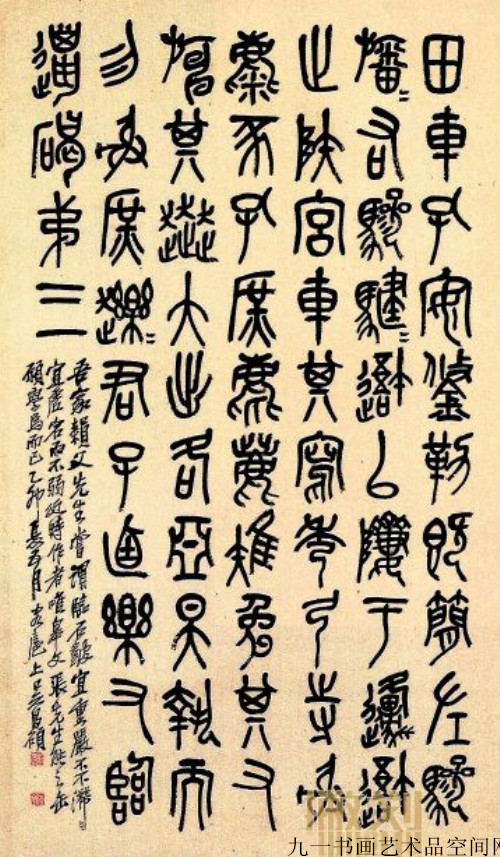 田車孔安鋚勒既簡左驂
旛=右驂騝=遊以隮于邍遊
止陕宮車其寫秀弓寺射
麋豕孔庶麀鹿雉兔其又
旃其大出各亞昊執而
勿射庶趮=君子逌樂又臨
遺碣弟三
吾家先生嘗謂臨石鼓宜重嚴而不滯
宜虛宕而不弱近時作者唯皋文張先生能之缶
碩學焉而已乙卯夏五月客滬上吳昌碩
九一书画艺术品空间网